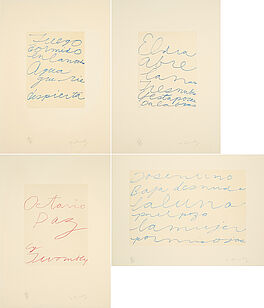 Fuego
dormido
en la noche
Agua
que ríe
despierta
El día
abre
la mano
Tres nubes
y estas pocas
palabras
Octavio
Paz
Cy
Twombly
Baja desnuda
la luna
por el pozo
la mujer
por mis ojos